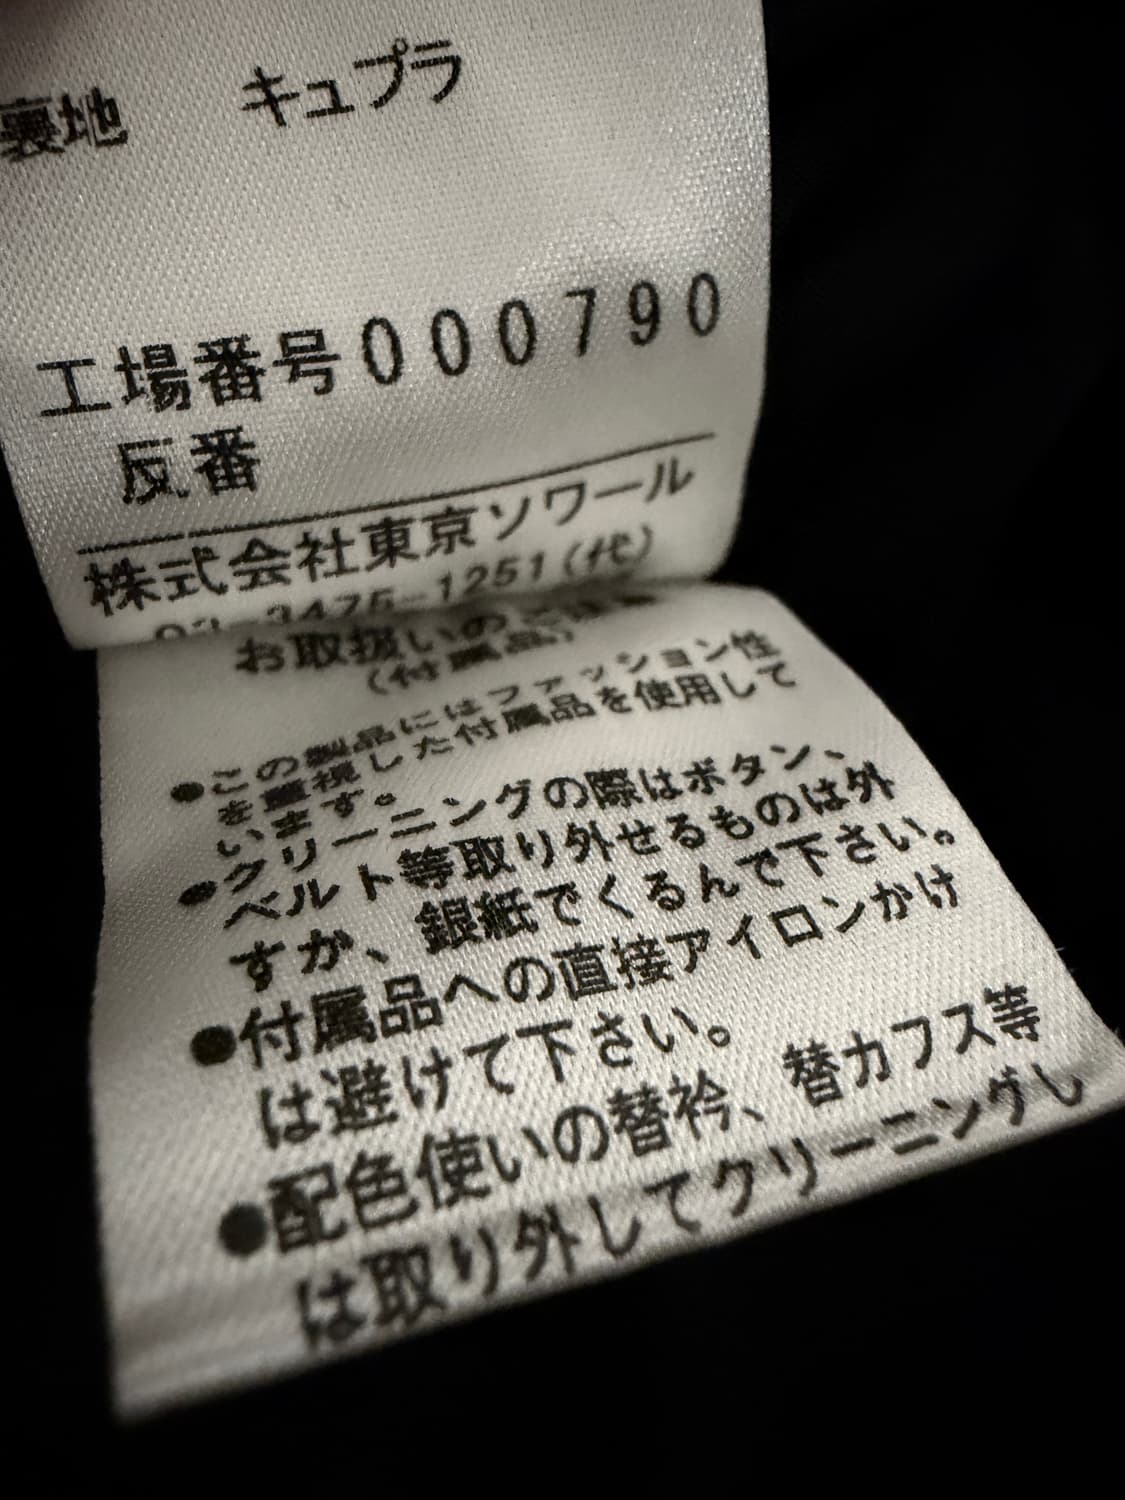 裏地 キュプラ
工場番号000790
反番
株式会社東京ソワール
03-3475-1251(代)
お取扱いのご注意
(付属品)
●この製品にはファッション性
を重視した付属品を使用して
います。
●クリーニングの際はボタン、
ベルト等取り外せるものは外
すか、銀紙でくるんで下さい。
●付属品への直接アイロンかけ
は避けて下さい。
●配色使いの替衿、替カフス等
は取り外してクリーニングし